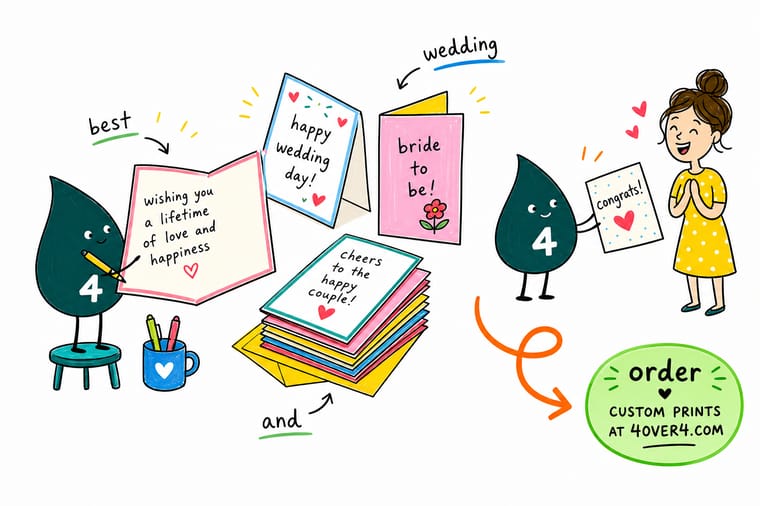 best
wedding
wishing you
a lifetime
of love and
happiness
4
happy
wedding
day!
bride
to
be!
cheers
to the
happy
couple!
and
4
congrats!
order
CUSTOM PRINTS
AT 4OVER4.COM